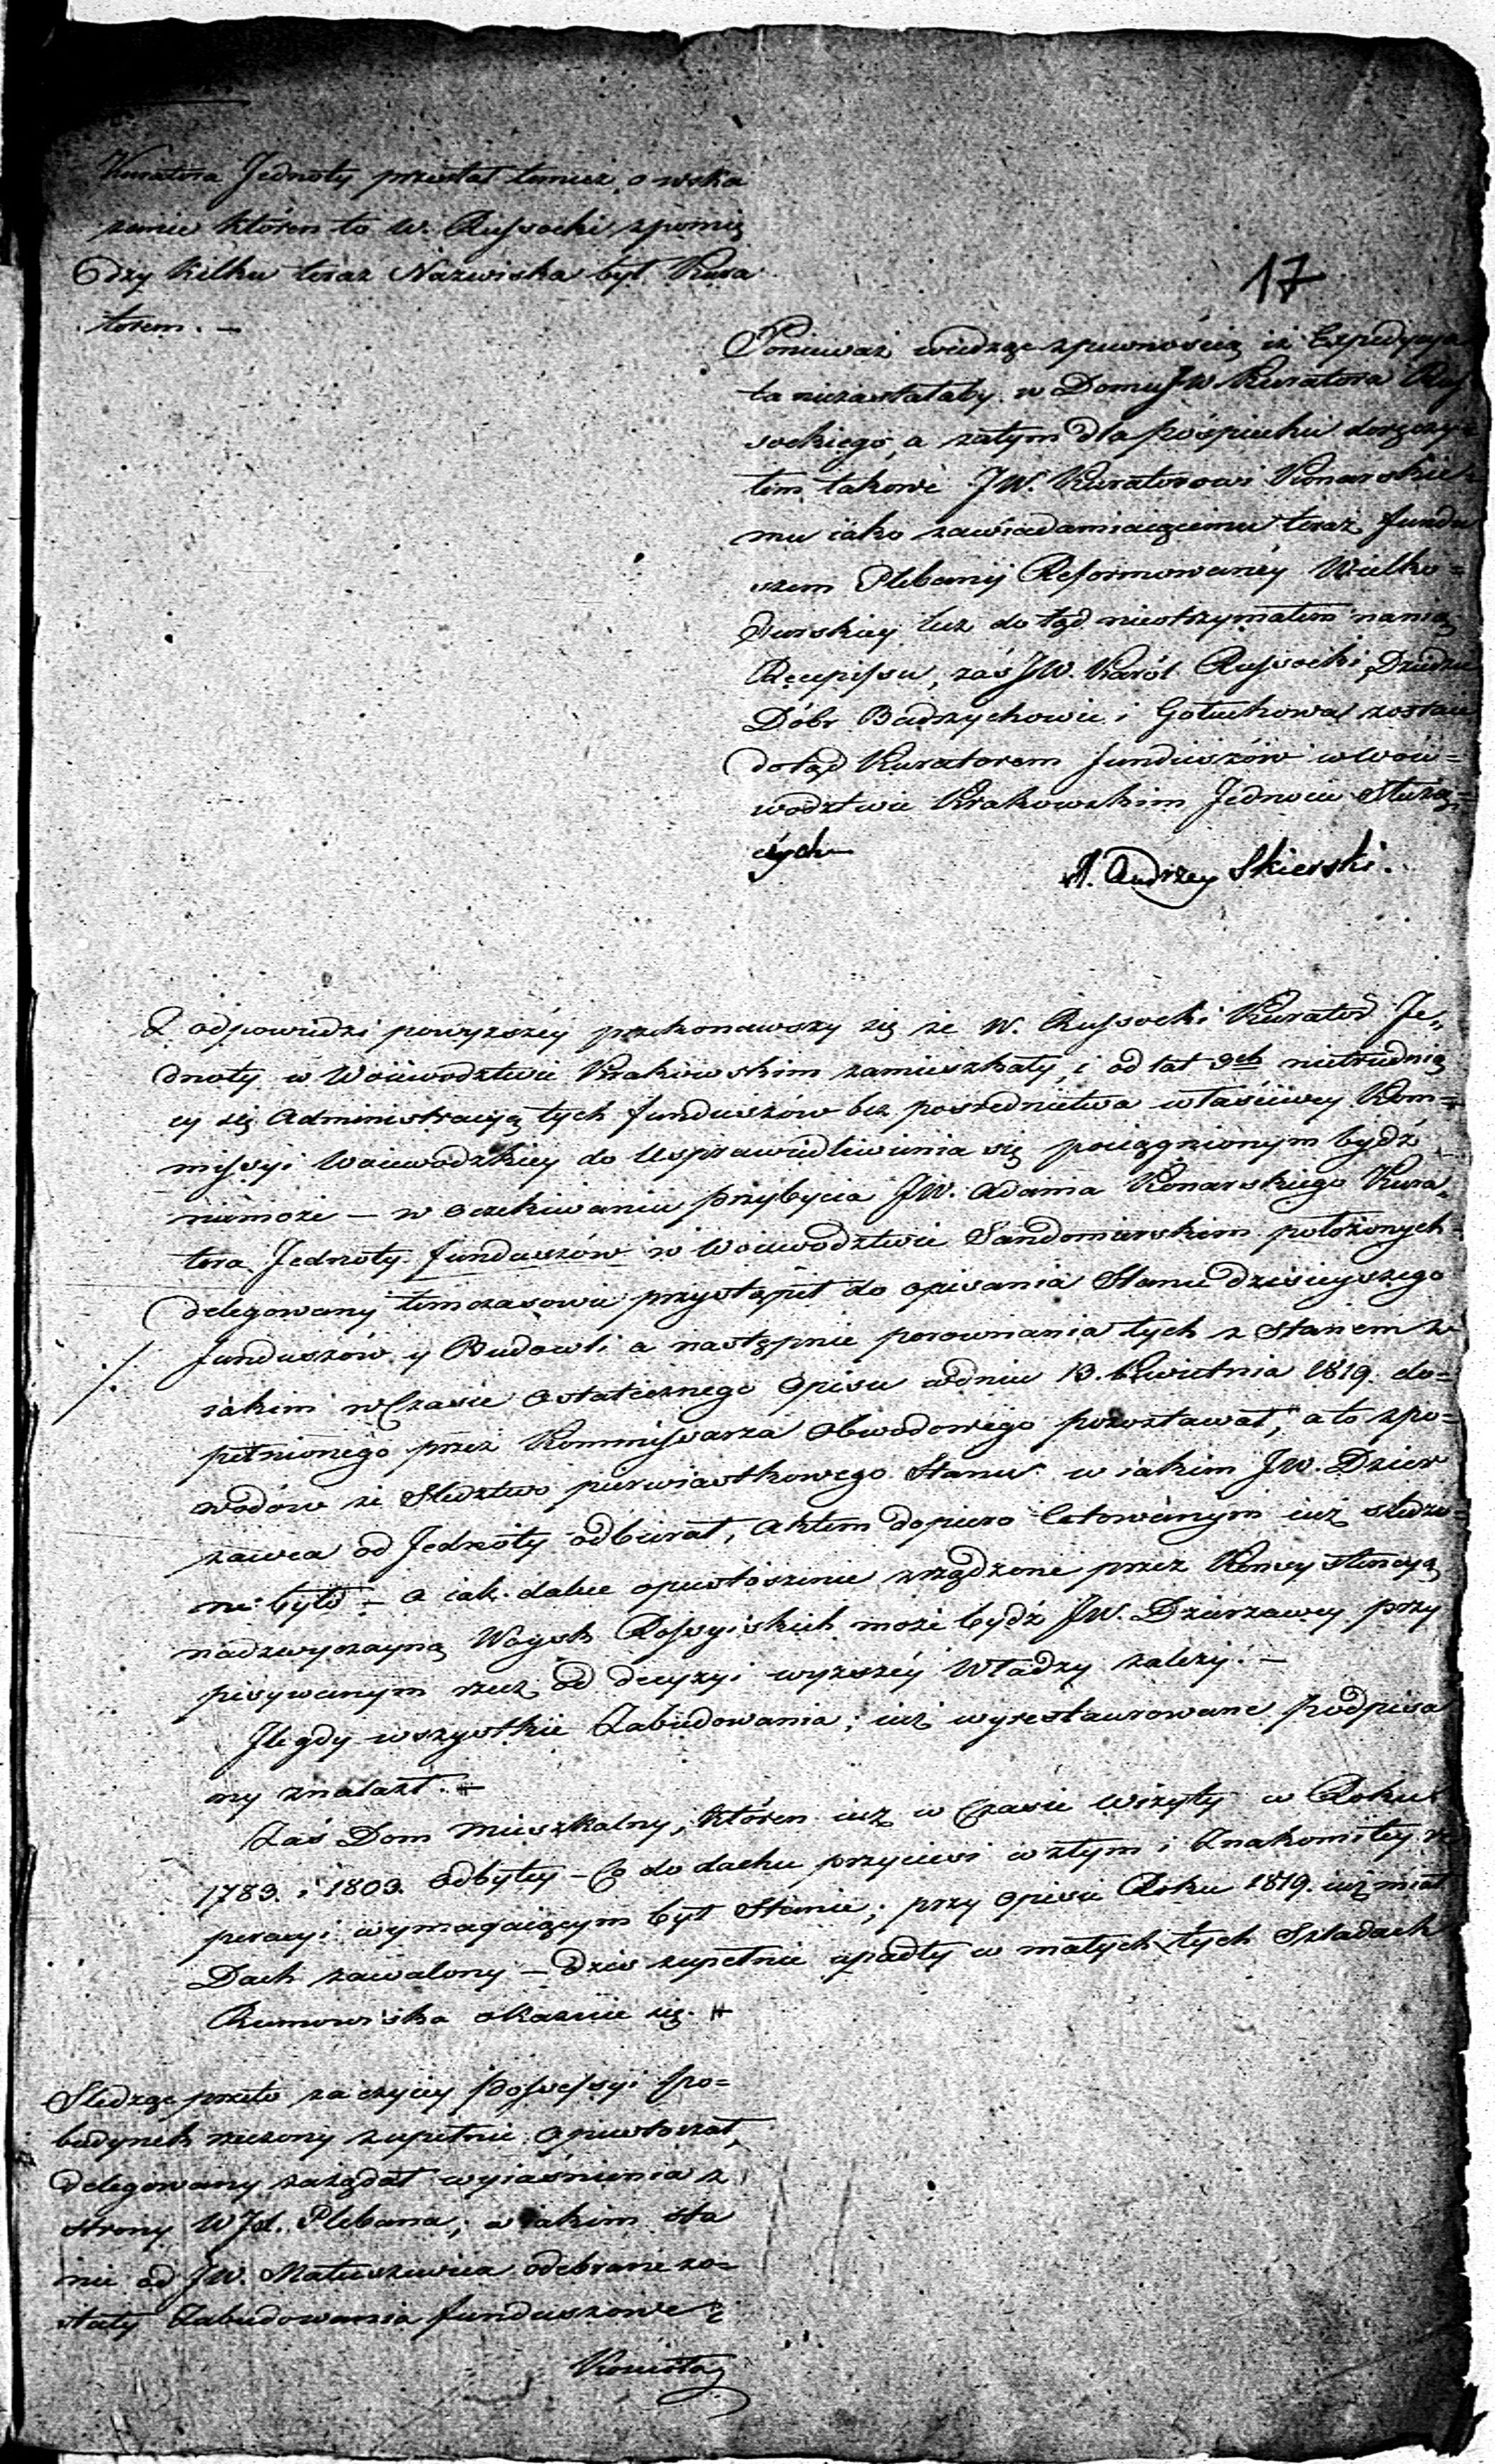 Kuratora Jednoty przestał tenież, o wska
zanie któren to W. Russocki zpomię
dzy kilku teraz Nazwiska był Kura
torem. —
17
Ponieważ wiedząc zpewnością iż Expedycya
ta niezastałaby w Domu JW Kuratora Rus
sockiego, a zatym dla pośpiechu doręczy=
łem takowe JW. Kuratorowi Konarskie=
mu iako zawiadamiaiącemu teraz fundu
szem Plebanij Reformowanéy Wielko=
dworskiey lecz do tąd nieotrzymałem nanią
Recepissu, zaś JW. Karól Russocki Dziedzic
Dóbr Badrzychowic i Gołuchowa zostaie
dotąd Kuratorem funduszów w Woie=
wodztwie Krakowskim Jednocie Służą=
cych
X. Andrzey Skierski.
Z odpowiedzi powyższéy przekonawszy się że W. Russocki Kurator Je„
dnoty w Woiewodztwie Krakowskim zamieszkały, i od lat 3ch nietrudnią
cy się Administracyą tych funduszów bez posrednictwa właściwey Kom=
missyi Woiewodzkiey do Usprawiedliwienia się pociągnionym bydź
niemoże — w oczekiwaniu przybycia JW. Adama Konarskiego Kura„
tora Jednoty funduszów w Woiewodztwie Sandomierskim położonych
delegowany tymczasowie przystąpił do opisania Stanu dzisieyszego
funduszów y Budowli a następnie porownania tych z stanem w
iakim w Czasie ostatecznego Opisu wdniu 13. Kwietnia 1819. do=
pełnionego przez Kommissarza Obwodowego pozostawał, a to zpo=
wodów że Sledztwo pierwiastkowego Stanu w iakim JW. Dzier
zawca od Jednoty odbierał, Aktem dopiero Cetowanym iuż śledzo=
ne było — a iak dalece opustoszenie zrządzone przez Konsystencyą
nadzwyczayną Woysk Rossyiskich może bydź JW. Dzierzawcy przy
pisywanym rzecz od decyzyi wyższéy Władzy zależy. —
Ile gdy wszystkie Zabudowania; iuż wyrestaurowane podpisa
ny znalazł. —
Zaś Dom mieszkalny, któren iuż w Czasie Wizyty w Roku
1783. i 1803. odbytey — Co do dachu przyciesi w złym i Znakomitey re
peracyi wymagaiącym był Stanie; przy Opisie Roku 1819. iuż miał
Dach zawalony — dziś zupełnie upadły w małych tych Szladach
Rumowiska okazuie się. #
Sledząc przeto za czyiey Possessyi po=
budynek rzeczony zupełnie opustoszał,
delegowany zażądał wyiaśnienia z
strony WJX. Plebana; w iakim sta
nie od JW. Matuszewica odebrane zo=
stały Zabudowania funduszowe?